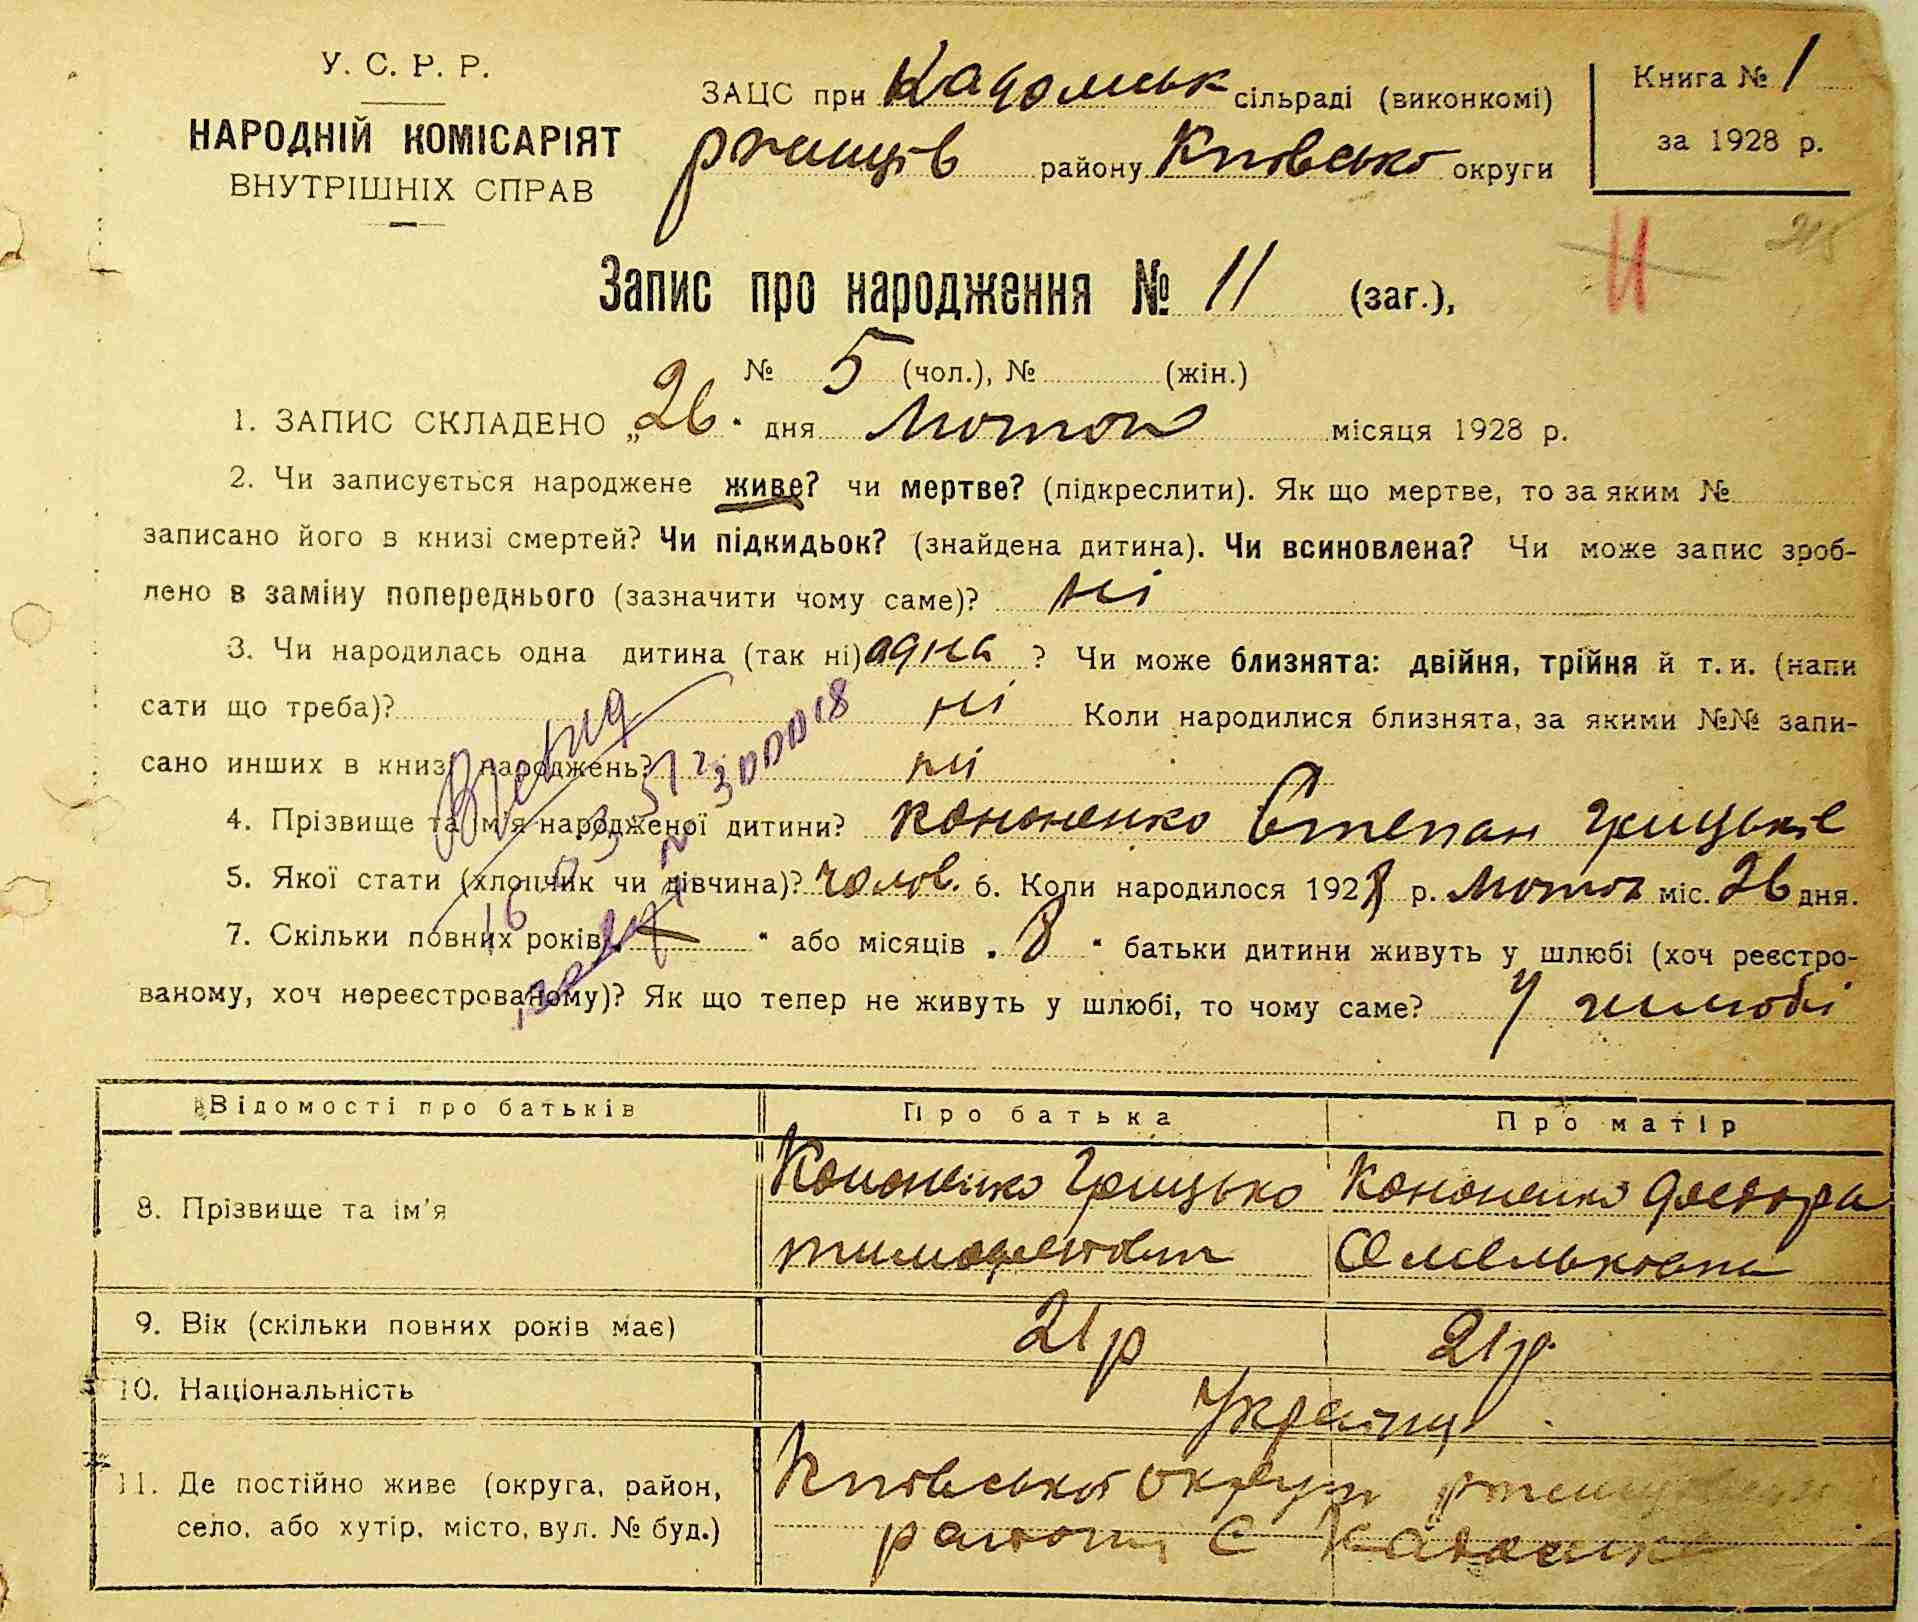 У. С. Р. Р.
НАРОДНІЙ КОМІСАРІЯТ
ВНУТРІШНІХ СПРАВ
ЗАЦС при Кадомськ сільраді (виконкомі)
ржищів району Київсько округи
Книга № 1
за 1928 р.
11
Запис про народження № 11 (заг.),
№ 5 (чол.), № (жін.)
1. ЗАПИС СКЛАДЕНО „26" дня Лютого місяця 1928 р.
2. Чи записується народжене живе? чи мертве? (підкреслити). Як що мертве, то за яким №
записано його в книзі смертей? Чи підкидьок? (знайдена дитина). Чи всиновлена? Чи може запис зроб-
лено в заміну попереднього (зазначити чому саме)? ні
3. Чи народилась одна дитина (так ні) одна ? Чи може близнята: двійня, трійня й т. и. (напи
сати що треба)? ні Коли народилися близнята, за якими №№ запи-
сано инших в книзі народжень? ні
4. Прізвище та ім'я народженої дитини? Кононенко Степан Грицьків
5. Якої стати (хлопчик чи дівчина)? чолов. 6. Коли народилося 1928 р. Лютого міс. 26 дня.
7. Скільки повних років „ — " або місяців „ 8 " батьки дитини живуть у шлюбі (хоч реєстро-
ваному, хоч нереєстрованому)? Як що тепер не живуть у шлюбі, то чому саме? У шлюбі
Відомості про батьків Про батька Про матір
8. Прізвище та ім'я Кононенко Грицько Кононенко Федора
тимофеєвич Омельковна
9. Вік (скільки повних років має) 21 р 21 р.
10. Національність Українці
11. Де постійно живе (округа, район, Київської округи
село, або хутір, місто, вул. № буд.) району с